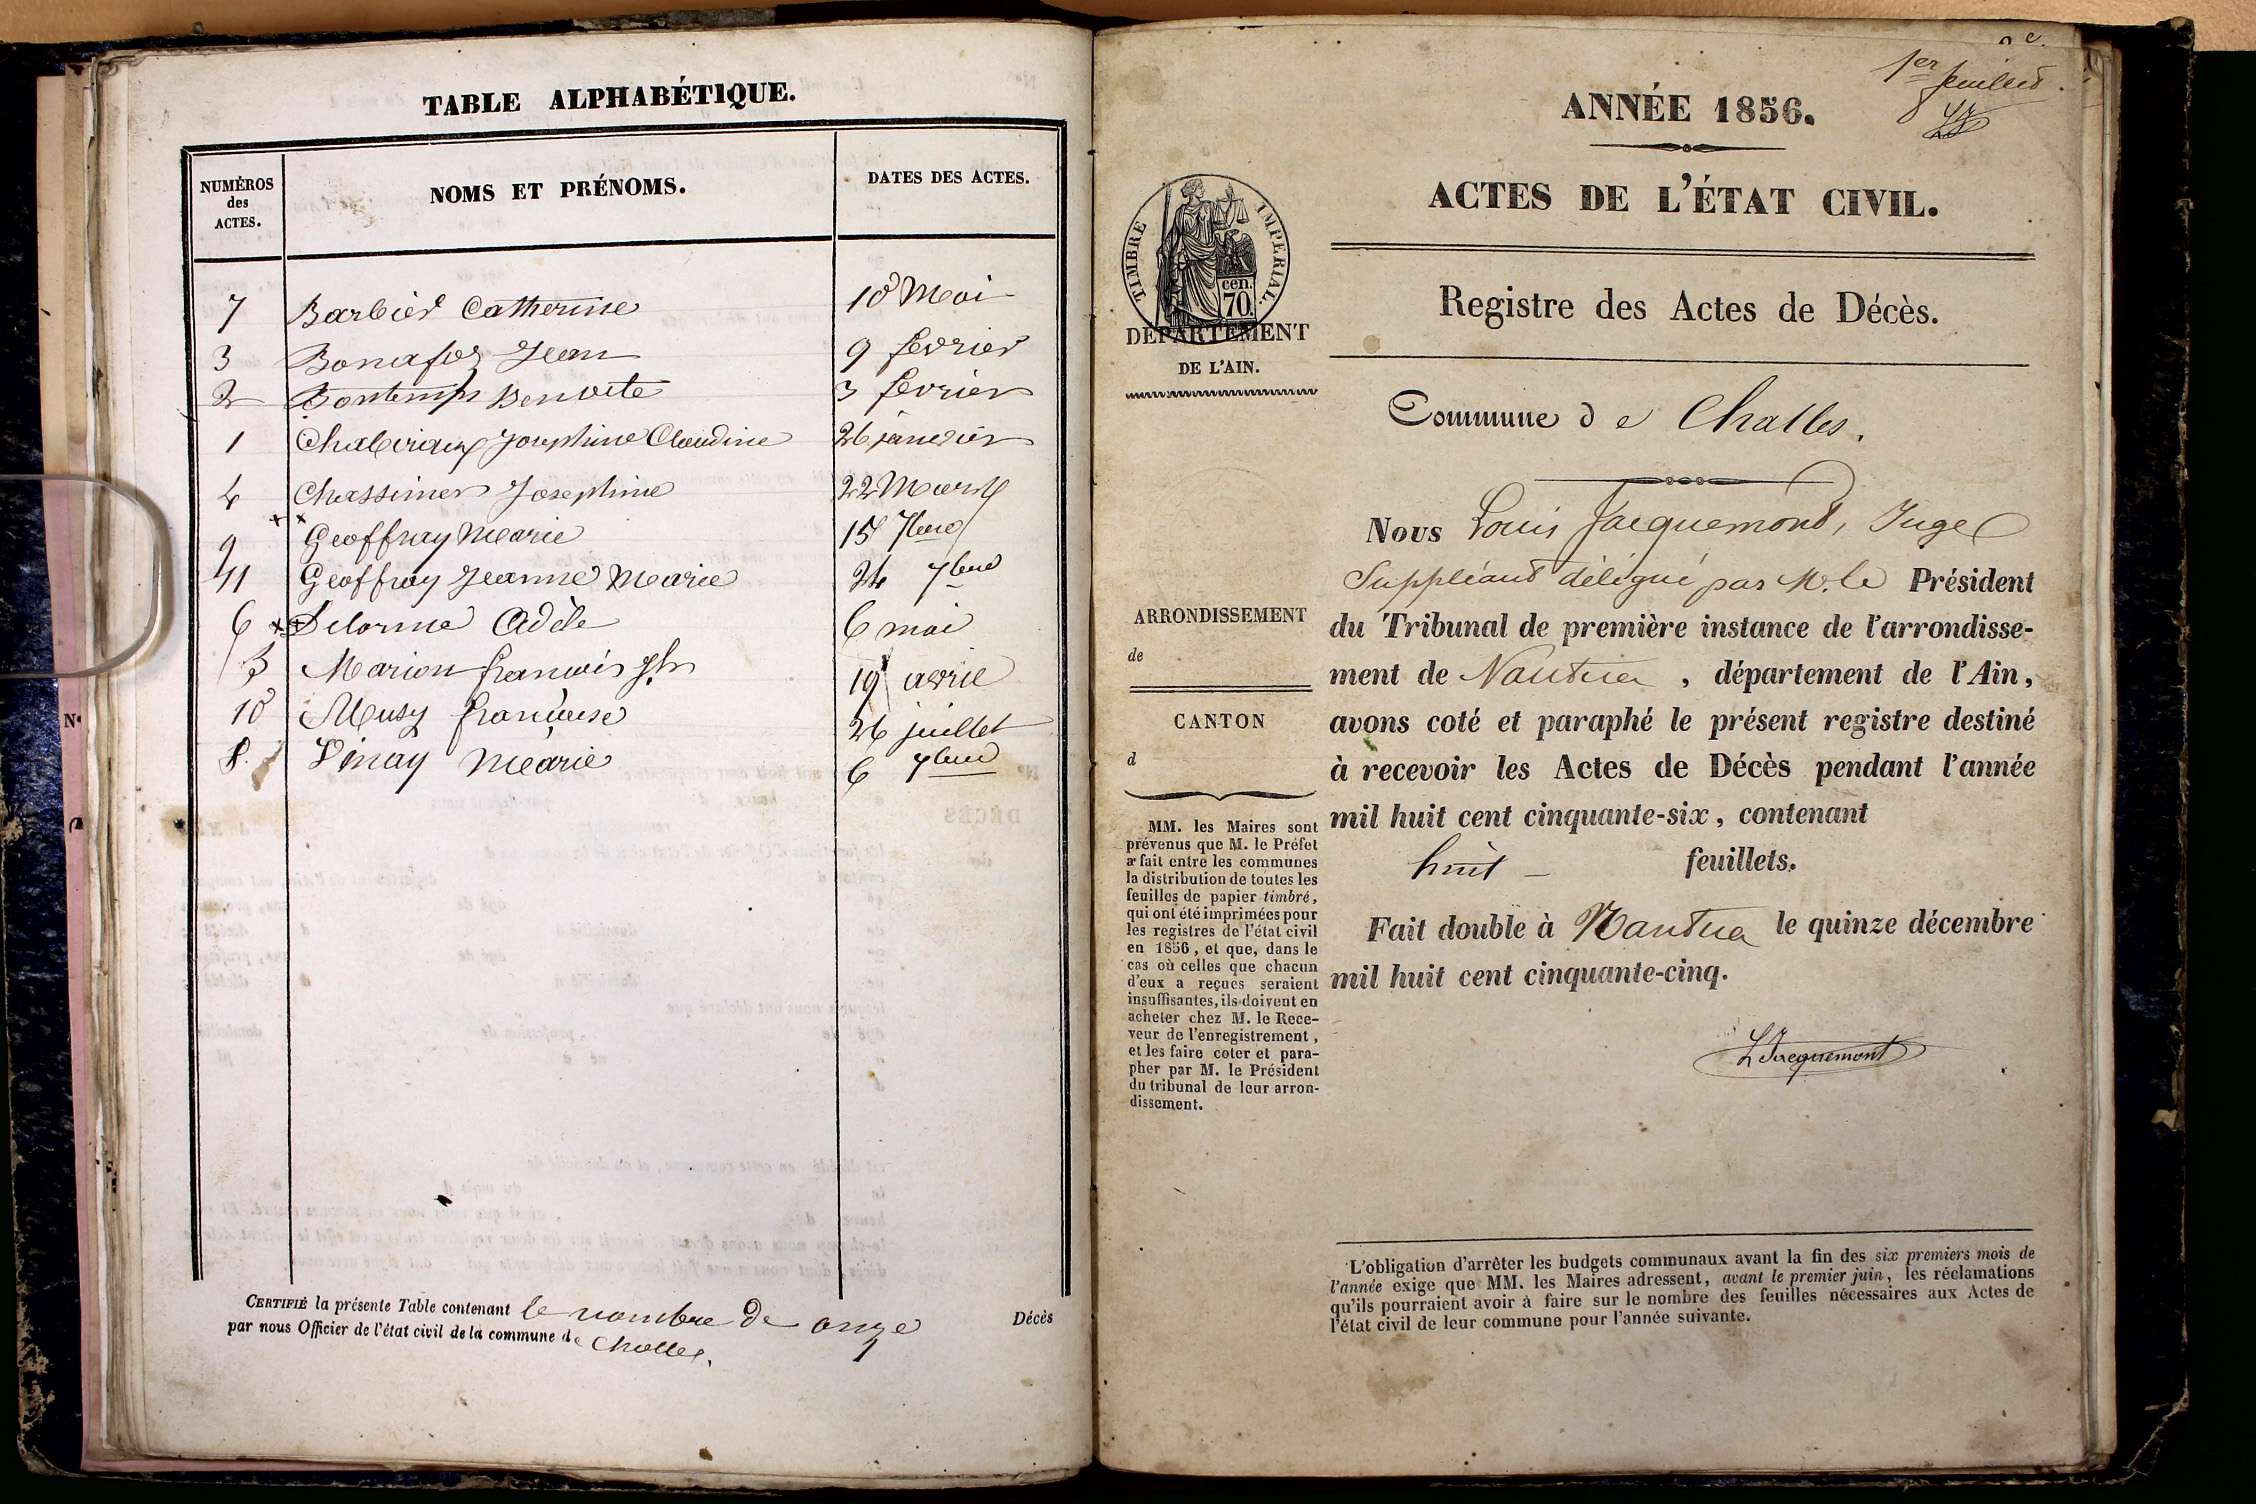 TABLE ALPHABÉTIQUE.
NUMÉROS des ACTES.
NOMS ET PRÉNOMS.
DATES DES ACTES.
7 Barbier Catherine 10 Mai
3 Bonafos Jean 9 fevrier
2 Bontemps Benoite 3 fevrier
1 Josephine Claudine 26 janvier
4 Josephine 22 Mars
9 Geoffray Marie 15 7bre
11 Geoffray Jeanne Marie 24 7bre
6 Delorme Adèle 6 mai
5 Marion francois jh 19 avril
10 Musy francoise 26 juillet
8. Vinay Marie 6 7bre
CERTIFIÉ la présente Table contenant le nombre de onze Décès
par nous Officier de l'état civil de la commune de Challes.
1er feuillet.
ANNÉE 1856.
ACTES DE L'ÉTAT CIVIL.
TIMBRE IMPERIAL.
cen. 70.
DEPARTEMENT
DE L'AIN.
Registre des Actes de Décès.
Commune de Challes.
Nous Louis Jacquemont, Juge
Suppléant délégué par M. le Président
du Tribunal de première instance de l'arrondisse-
ment de Nantua, département de l'Ain,
avons coté et paraphé le présent registre destiné
à recevoir les Actes de Décès pendant l'année
mil huit cent cinquante-six, contenant
huit feuillets.
Fait double à Nantua le quinze décembre
mil huit cent cinquante-cinq.
L Jacquemont
ARRONDISSEMENT
de
CANTON
d
MM. les Maires sont
prévenus que M. le Préfet
a fait entre les communes
la distribution de toutes les
feuilles de papier timbré,
qui ont été imprimées pour
les registres de l'état civil
en 1856, et que, dans le
cas où celles que chacun
d'eux a reçues seraient
insuffisantes, ils doivent en
acheter chez M. le Rece-
veur de l'enregistrement,
et les faire coter et para-
pher par M. le Président
du tribunal de leur arron-
dissement.
L'obligation d'arrêter les budgets communaux avant la fin des six premiers mois de
l'année exige que MM. les Maires adressent, avant le premier juin, les réclamations
qu'ils pourraient avoir à faire sur le nombre des feuilles nécessaires aux Actes de
l'état civil de leur commune pour l'année suivante.